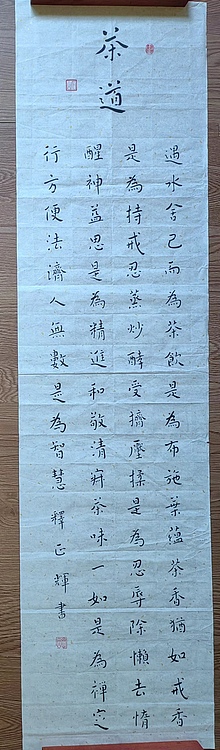 茶道
遇水舍己而為茶飲是為布施葉蘊茶香猶如戒香
是為持戒忍蒸炒酵受擠壓揉是為忍辱除懶去惰
醒神益思是為精進和敬清寂茶味一如是為禪定
行方便法濟人無數是為智慧 釋正輝書